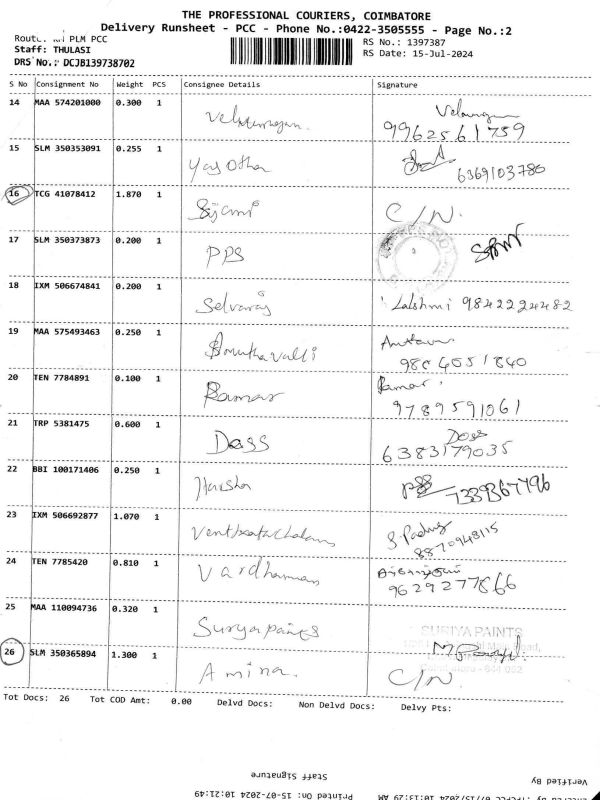 THE PROFESSIONAL COURIERS, COIMBATORE
Delivery Runsheet - PCC - Phone No.:0422-3505555 - Page No.:2
PLM PCC
RS No.: 1397387
Staff: THULASI
RS Date: 15-Jul-2024
DRS No.: DCJB139738702
S No Consignment No Weight PCS Consignee Details Signature
14 MAA 574201000 0.300 1 Velmurugan. Velmurugan
9962561759
15 SLM 350353091 0.255 1 Yasotha
6369103780
16 TCG 41078412 1.870 1 C/N.
17 SLM 350373873 0.200 1 PPS
18 IXM 506674841 0.200 1 Selvaraj Lalshmi 9842224482
19 MAA 575493463 0.250 1
20 TEN 7784891 0.100 1 Ramar Ramar
9789591061
21 TRP 5381475 0.600 1 Dass Doss
6383179035
22 BBI 100171406 0.250 1 Harsha
7339367796
23 IXM 506692877 1.070 1
8870948115
24 TEN 7785420 0.810 1 Vardhaman
9629277866
25 MAA 110094736 0.320 1 Suryapaints
SURIYA PAINTS
26 SLM 350365894 1.300 1 Amina. C/N.
Tot Docs: 26 Tot COD Amt: 0.00 Delvd Docs: Non Delvd Docs: Delvy Pts:
Staff Signature
Verified By
Printed On: 15-07-2024 10:21:49
07/15/2024 10:13:29 AM